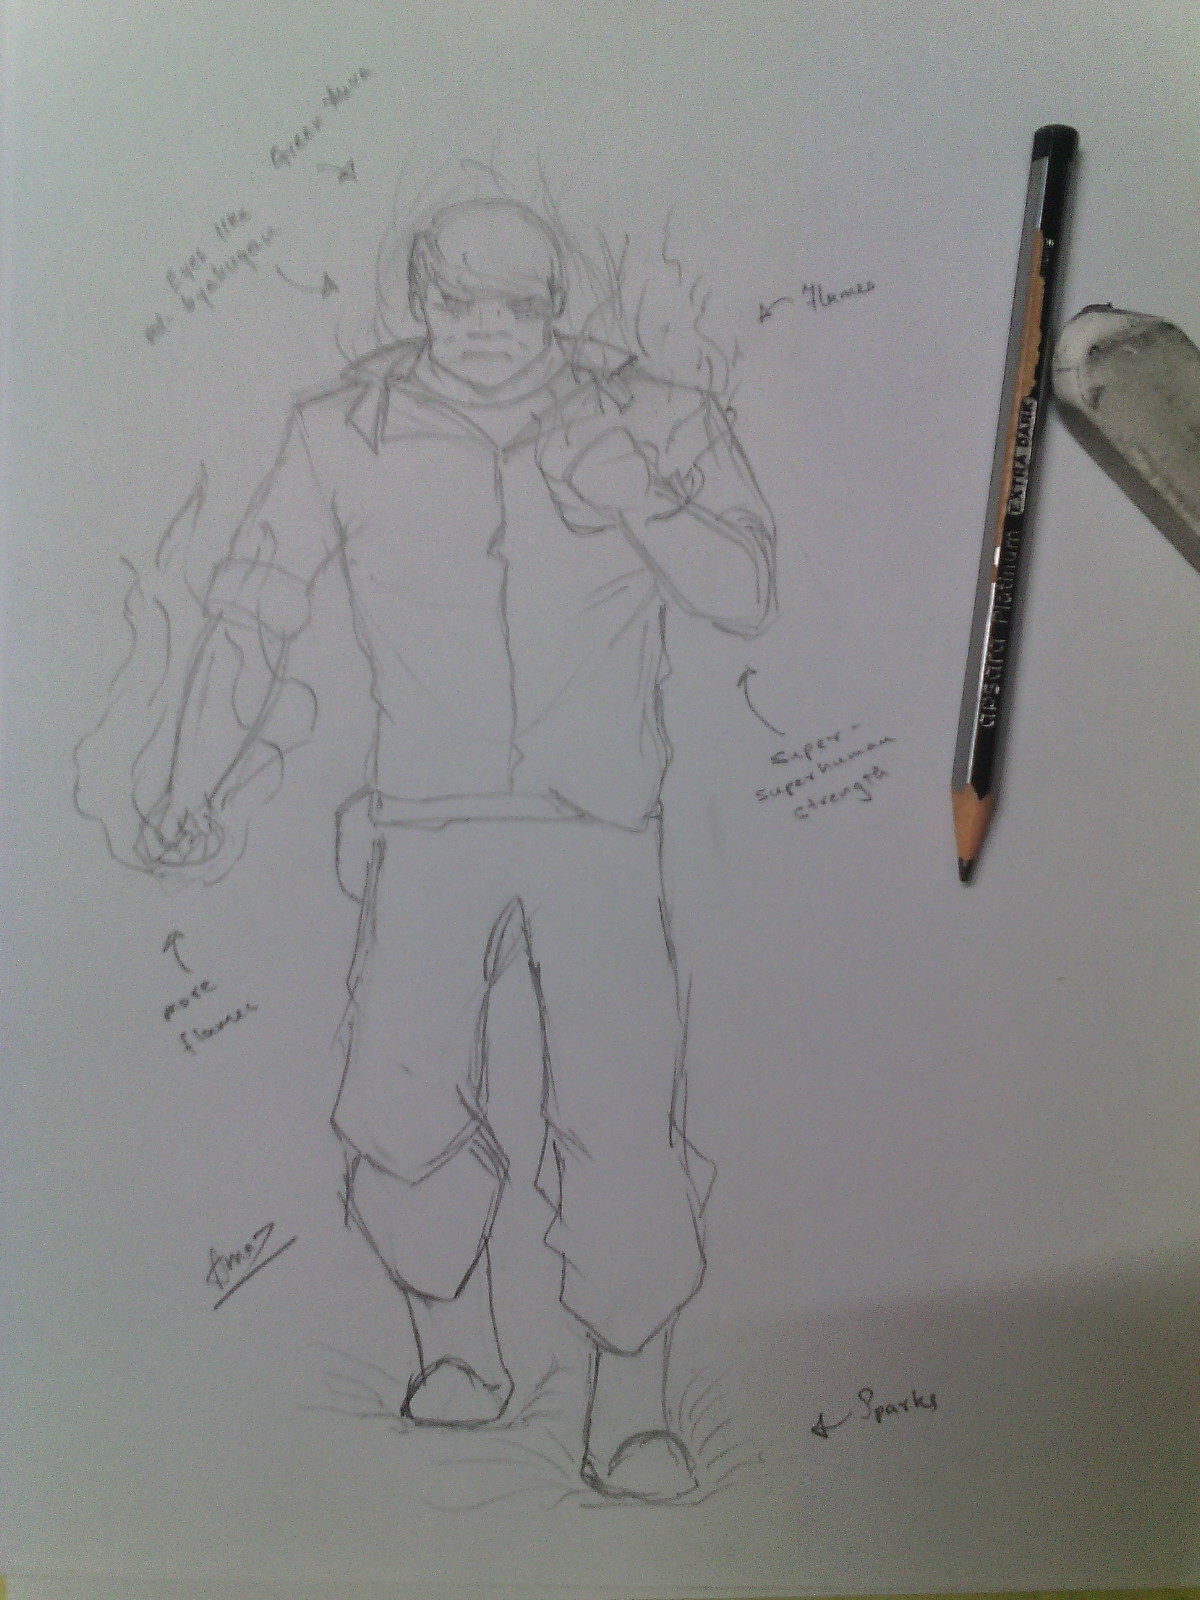 Green Aura
Eyes like
byakugan
Flames
super-
superhuman
strength
more
flames
Sparks
apsara Platinum EXTRA DARK